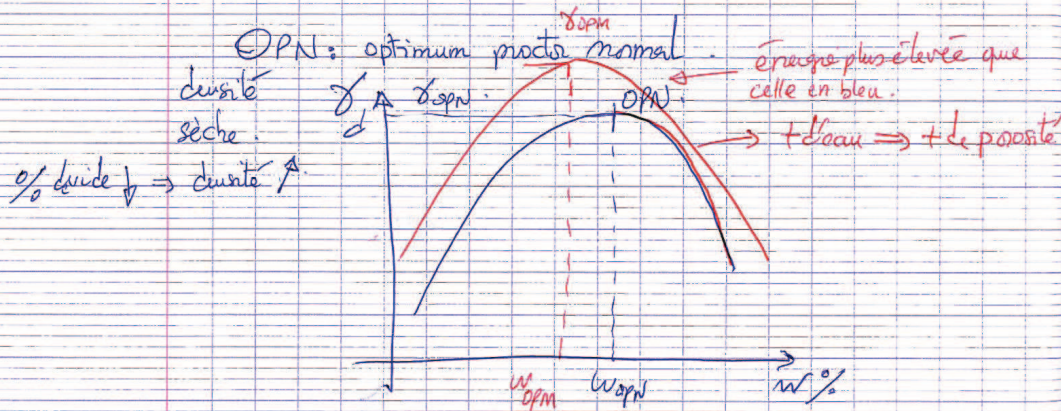 γOPM
OPN: optimum proctor normal.
énergie plus élevée que
celle en bleu.
densité
sèche.
γd
γOPN.
OPN.
+ d'eau ⇒ + de porosité
% de vide ↓ ⇒ densité ↗.
wOPM
wOPN
w%